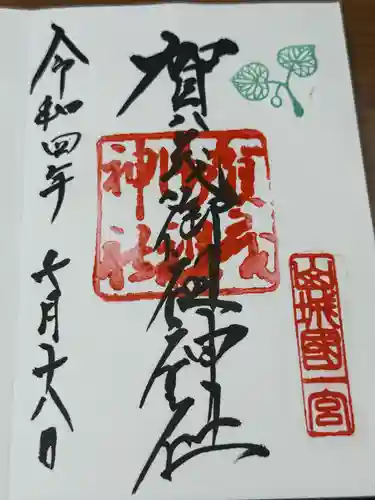 賀茂御祖神社
山城國一宮
賀茂御祖神社
令和四年 七月十八日